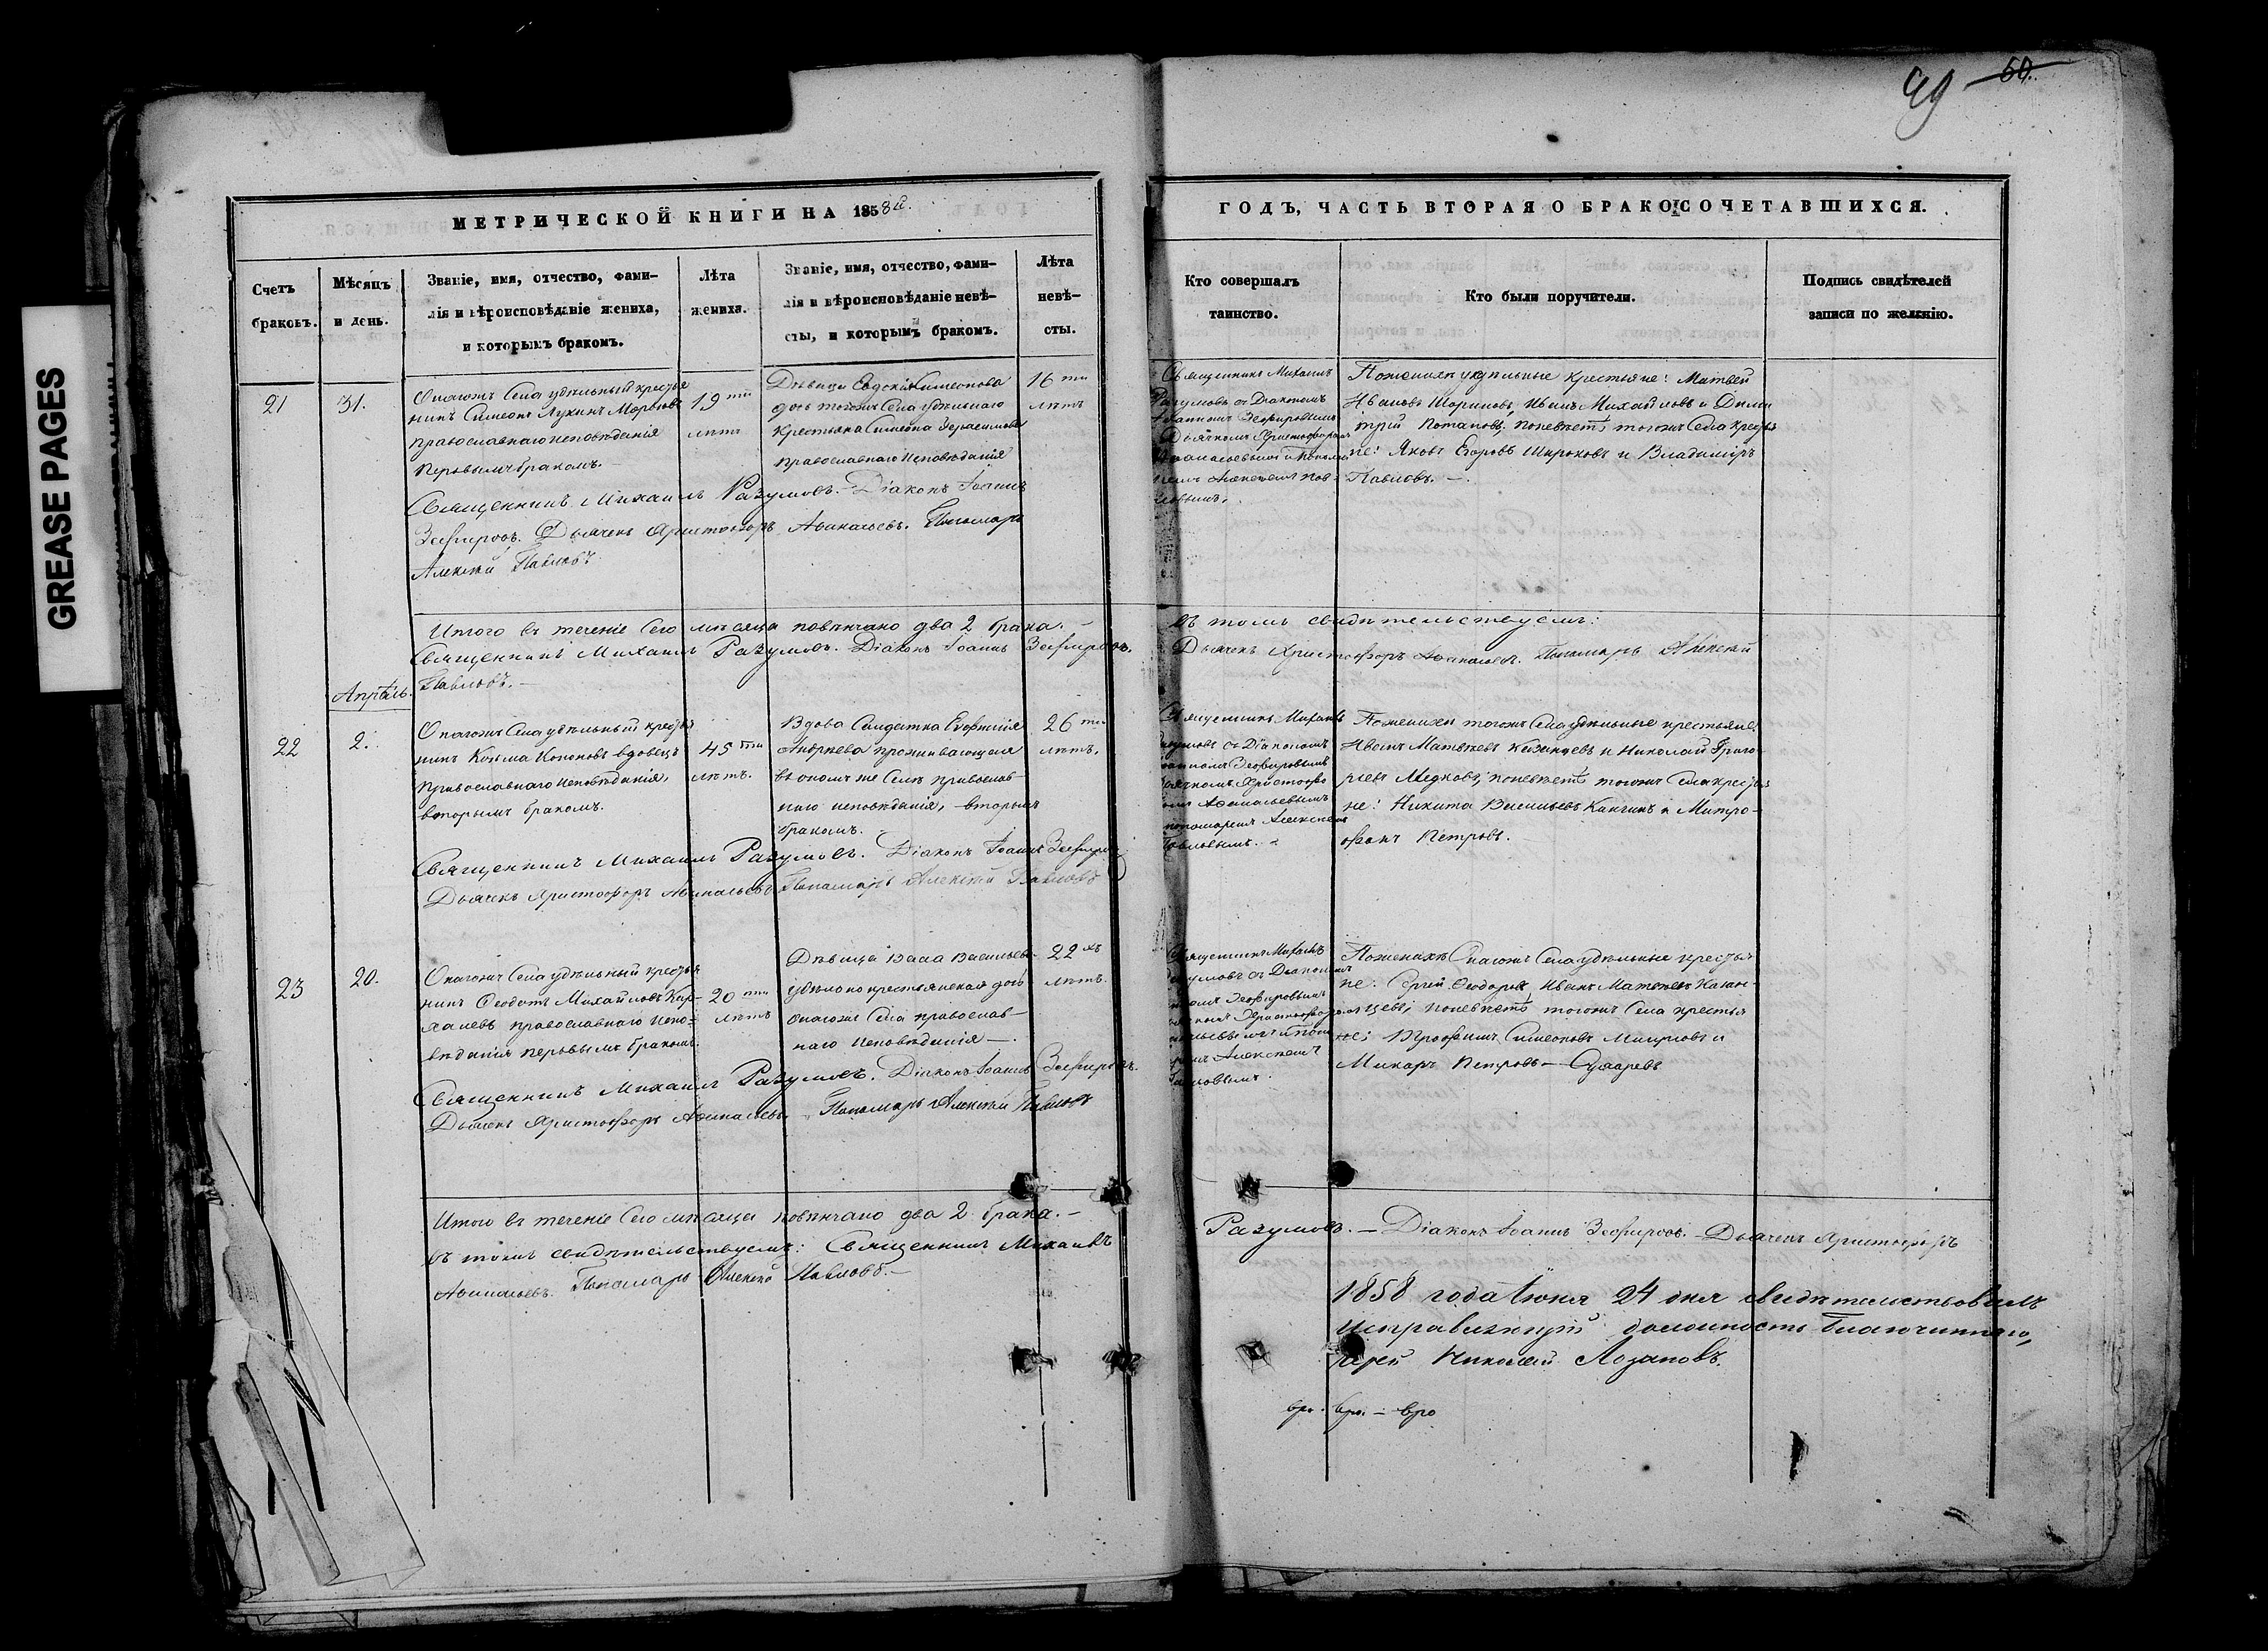 49 50.
GREASE PAGES
МЕТРИЧЕСКОЙ КНИГИ НА 1858й.
ГОДЪ, ЧАСТЬ ВТОРАЯ О БРАКОСОЧЕТАВШИХСЯ.
Счетъ
браковъ.
Мѣсяцъ
и день.
Званіе, имя, отчество, фами-
лія и вѣроисповѣданіе жениха,
и которымъ бракомъ.
Лѣта
жениха.
Званіе, имя, отчество, фами-
лія и вѣроисповѣданіе невѣ-
сты, и которымъ бракомъ.
Лѣта
невѣ-
сты.
Кто совершалъ
таинство.
Кто были поручители.
Подпись свидѣтелей
записи по желанію.
21
31.
Села удѣльный крестья
нинъ Симеонъ Лукинъ
православнаго исповѣданія
первымъ бракомъ.
19ти
лѣтъ
Дѣвица Евдокія Симеонова
дочь тогожъ Села удѣльнаго
крестьяна Симеона Герасимова
православнаго исповѣданія
16ти
лѣтъ
Священникъ Михаилъ
Разумовъ съ Діакономъ
Зефировымъ
Дьячкомъ Христофоромъ
Аѳанасьевымъ и Понома
Алексѣемъ Пав-
ловымъ.
По женихѣ удѣльные крестьяне: Матвей
Ивановъ, Иванъ Михайловъ и Дими
трій Потаповъ, по невѣстѣ тогожъ Села крестья
не: Яковъ Егоровъ Широковъ и Владиміръ
Павловъ. —
Священникъ Михаилъ Разумовъ. Діаконъ Іоаннъ
Зефировъ. Дьячекъ Христофоръ Аѳанасьевъ. Пономарь
Алексѣй Павловъ
Итого въ теченіе Сего мѣсяца повѣнчано два 2 брака. —
въ томъ свидѣтельствуемъ:
Священникъ Михаилъ Разумовъ. Діаконъ Іоаннъ Зефировъ.
Дьячекъ Христофоръ Аѳанасьевъ. Пономарь Алексѣй
Павловъ. —
Апрѣль.
22
2.
Села удѣльный крестья
нинъ Козьма Кононовъ вдовецъ
православнаго исповѣданія,
вторымъ бракомъ.
45ти
лѣтъ.
Вдова Солдатка
Андреева проживающая
въ ономъ же Селѣ православ-
наго исповѣданія, вторымъ
бракомъ.
26ти
лѣтъ.
Священникъ Михаилъ
Разумовъ съ Діакономъ
Зефировымъ
Дьячкомъ Христофо
ромъ Аѳанасьевымъ
пономаремъ Алексѣемъ
Павловымъ.
По женихѣ тогожъ Села удѣльные крестьяне
Иванъ Матвѣевъ Казанцевъ и Николай Григо-
рьевъ Медковъ, по невѣстѣ тогожъ Села крестья
не: Никита Васильевъ и Митро-
фанъ Петровъ.
Священникъ Михаилъ Разумовъ. Діаконъ Іоаннъ Зефировъ
Дьячекъ Христофоръ Аѳанасьевъ Пономарь Алексѣй Павловъ
23
20.
Села удѣльный крестья
нинъ Ѳеодотъ Михайловъ Кар-
православнаго испо-
вѣданія первымъ бракомъ.
20ти
лѣтъ
Дѣвица Васса Васильева
удѣльно крестьянская дочь
Села православ-
наго исповѣданія —.
22хъ
лѣтъ.
Священникъ Михаилъ
Разумовъ съ Діакономъ
Зефировымъ
Христофоромъ
Алексѣемъ
Павловымъ.
По женихѣ Села удѣльные крестья
не: Сергій Ѳеодоровъ, Иванъ Матвѣевъ Казан-
цевы, по невѣстѣ тогожъ Села крестья
не: Трофимъ Симеоновъ и
Макаръ Петровъ —
Священникъ Михаилъ Разумовъ. Діаконъ Іоаннъ Зефировъ.
Дьячекъ Христофоръ Аѳанасьевъ. Пономарь Алексѣй Павловъ
Итого въ теченіе Сего мѣсяца повѣнчано два 2 брака. —
въ томъ свидѣтельствуемъ: Священникъ Михаилъ
Разумовъ. — Діаконъ Іоаннъ Зефировъ. — Дьячекъ Христофоръ
Аѳанасьевъ. Пономарь Алексѣй Павловъ. —
1858 года Іюня 24 дня свидѣтельствовалъ
исправляющій должность Благочиннаго,
Іерей Николай Лозановъ.